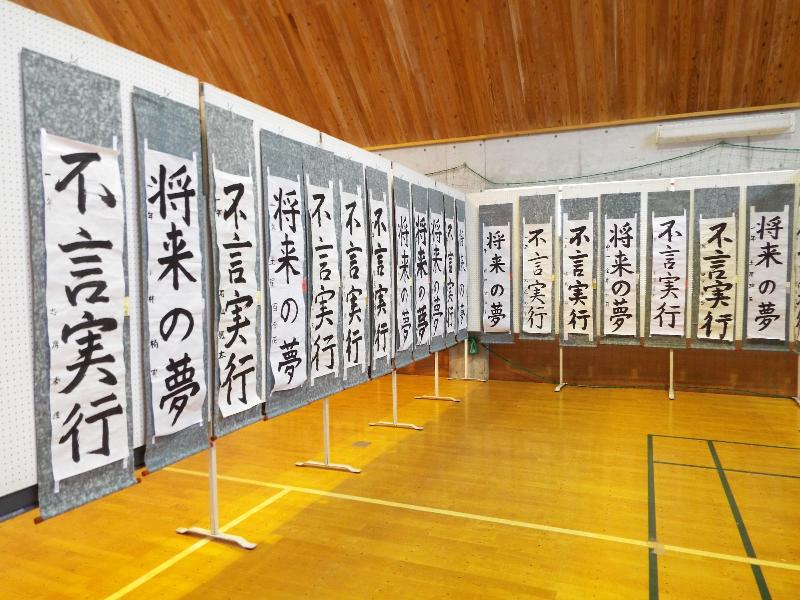 不言実行
将来の夢
不言実行
将来の夢
不言実行
不言実行
不言実行
将来の夢
将来の夢
将来の夢
不言実行
将来の夢
将来の夢
不言実行
不言実行
将来の夢
不言実行
不言実行
将来の夢